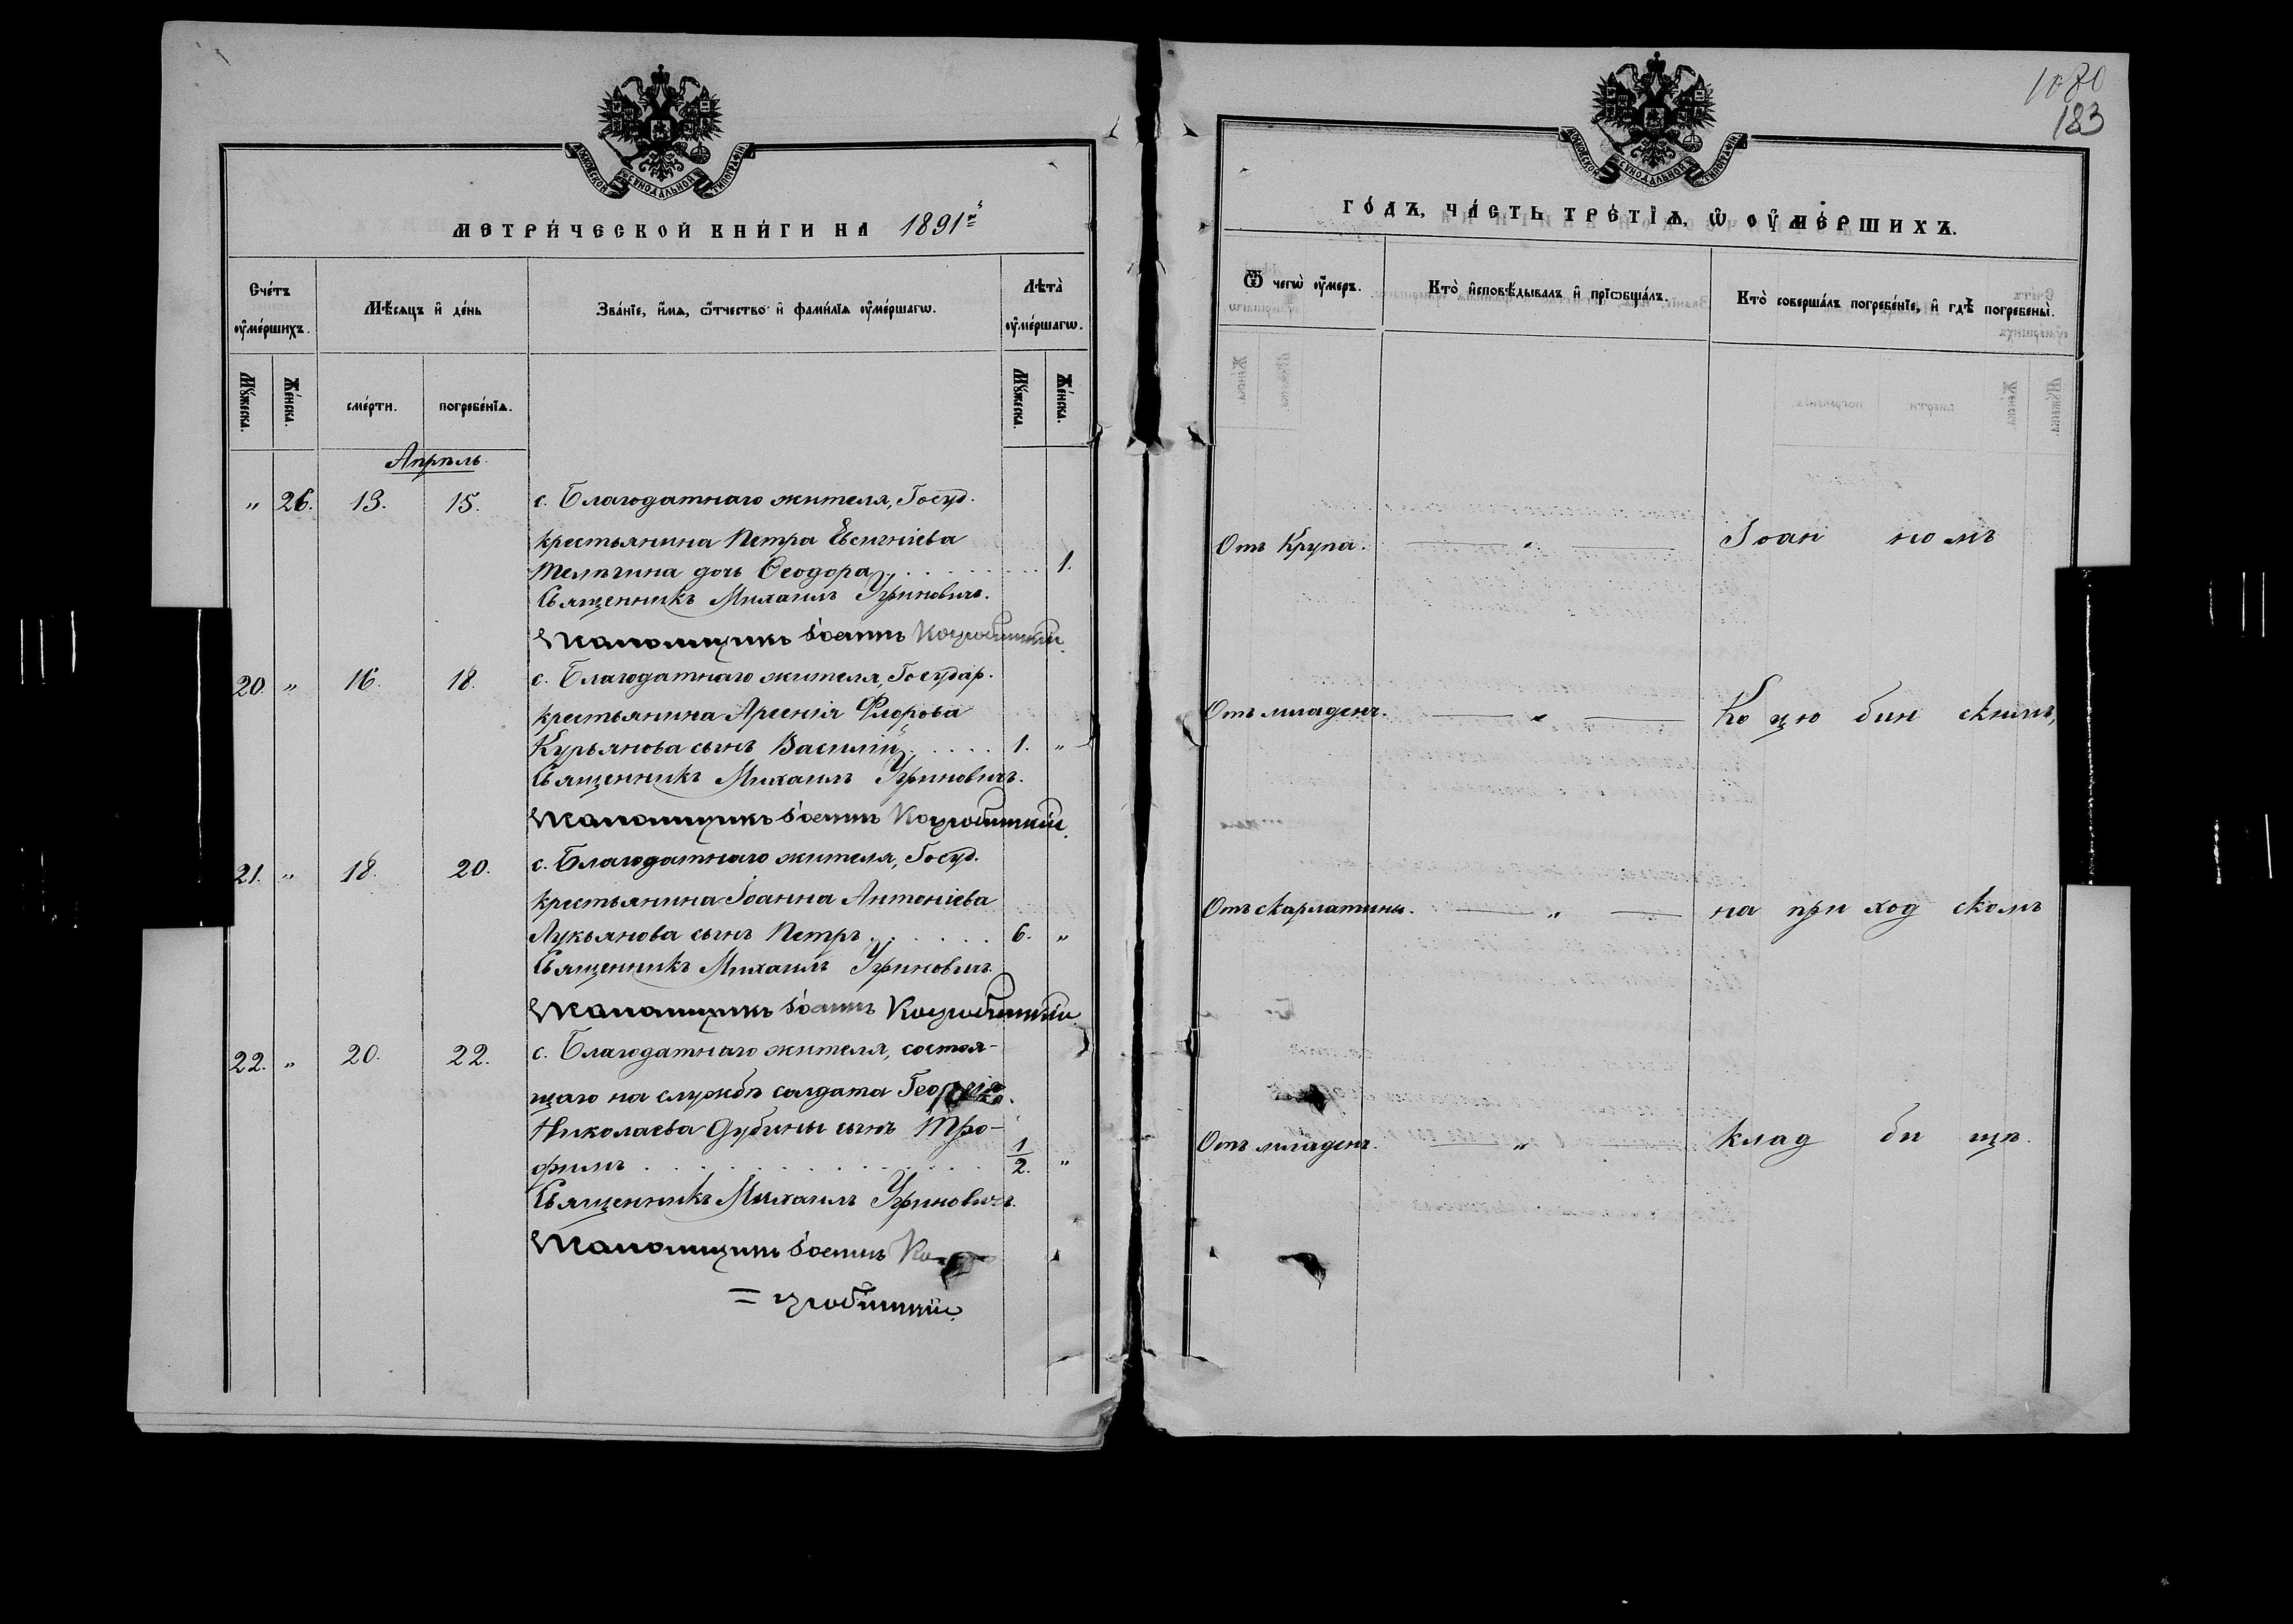 МОСКОВСКОЙ СѴНОДАЛЬНОЙ ТИПОГРАФІИ
МЕТРИ́ЧЕСКОЙ КНИ́ГИ НА 1891й
Сче́тъ ᲂу҆ме́ршихъ.
Мѣ́сяцъ и҆ де́нь
Зва́нїе, и҆́мѧ, ѻ҆́тчество и҆ фами́лїѧ ᲂу҆ме́ршагѡ.
Лѣта̀ ᲂу҆ме́ршагѡ.
Мꙋ́жеска.
Же́нска.
сме́рти.
погребе́нїѧ.
Мꙋ́жеска.
Же́нска.
Апрѣль.
" 26. 13. 15. с. Благодатнаго жителя, Госуд.
крестьянина Петра Евсигніева
Телѣгина дочь Ѳеодора 1.
Священникъ Михаилъ Угриновичъ.
Псаломщикъ Іоаннъ Коцюбинскій.
20. " 16. 18. с. Благодатнаго жителя, Государ.
крестьянина Арсенія Флорова
Курьянова сынъ Василій 1. "
Священникъ Михаилъ Угриновичъ.
Псаломщикъ Іоаннъ Коцюбинскій.
21. " 18. 20. с. Благодатнаго жителя, Госуд.
крестьянина Іоанна Антоніева
Лукьянова сынъ Петръ 6. "
Священникъ Михаилъ Угриновичъ.
Псаломщикъ Іоаннъ Коцюбинскій.
22. " 20. 22. с. Благодатнаго жителя, состоя-
щаго на службѣ солдата Георгія
Николаева Дубины сынъ Тро-
фимъ 1/2. "
Священникъ Михаилъ Угриновичъ.
Псаломщикъ Іоаннъ Ко-
= цюбинскій.
1080
183
МОСКОВСКОЙ СѴНОДАЛЬНОЙ ТИПОГРАФІИ
ГО́ДЪ, ЧА́СТЬ ТРЕ́ТЇѦ, Ѡ҆ ОУ҆МЕ́РШИХЪ.
Ѿ чегѡ̀ ᲂу҆́меръ.
Кто̀ и҆сповѣ́дывалъ и҆ прїѡбща́лъ.
Кто̀ соверша́лъ погребе́нїе, и҆ гдѣ̀ погребены̀.
Отъ Крупа. " Іоан номъ
Отъ младенч. " Ко цю бин скимъ,
Отъ скарлатины. " на при ход скомъ
Отъ младенч. " клад би щѣ.